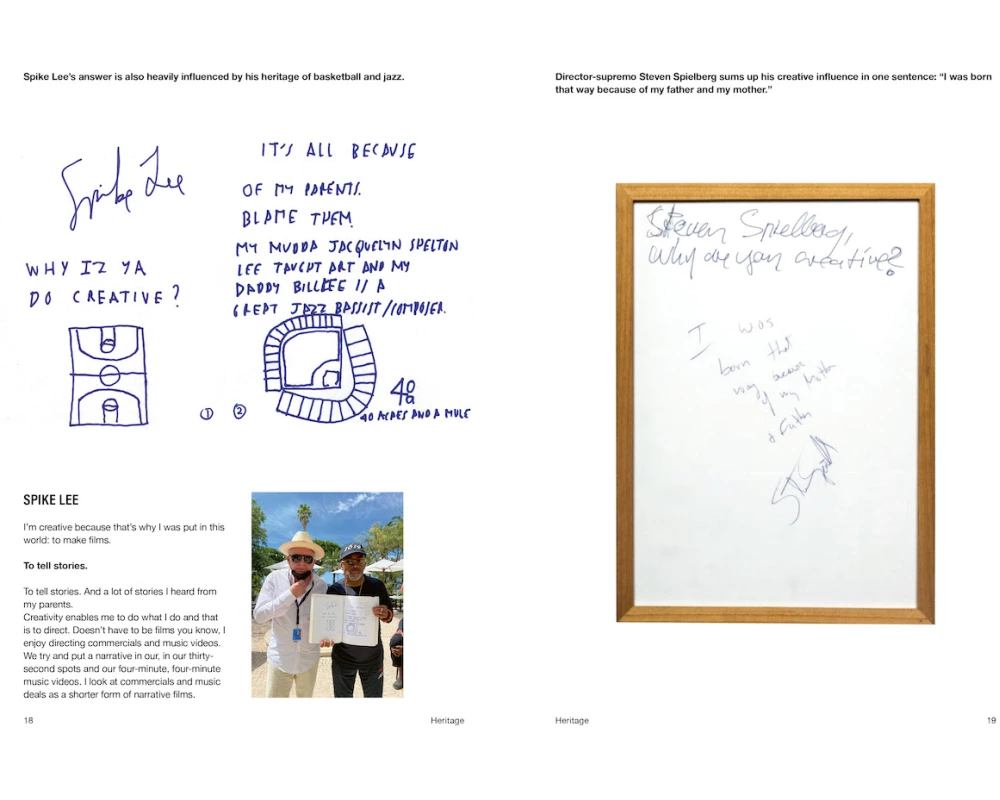 Spike Lee's answer is also heavily influenced by his heritage of basketball and jazz.
Spike Lee
WHY IZ YA
DO CREATIVE?
IT'S ALL BECAUSE
OF MY PARENTS.
BLAME THEM.
MY MUDDA JACQUELYN SHELTON
LEE TAUGHT ART AND MY
DADDY BILL LEE IS A
GREAT JAZZ BASSIST/COMPOSER.
① ②
40
40 ACRES AND A MULE
SPIKE LEE
I'm creative because that's why I was put in this
world: to make films.
To tell stories.
To tell stories. And a lot of stories I heard from
my parents.
Creativity enables me to do what I do and that
is to direct. Doesn't have to be films you know, I
enjoy directing commercials and music videos.
We try and put a narrative in our, in our thirty-
second spots and our four-minute, four-minute
music videos. I look at commercials and music
deals as a shorter form of narrative films.
18
Heritage
Director-supremo Steven Spielberg sums up his creative influence in one sentence: "I was born
that way because of my father and my mother."
Steven Spielberg,
Why are you creative?
I was
born that
way because
of my mother
& Father
Heritage
19